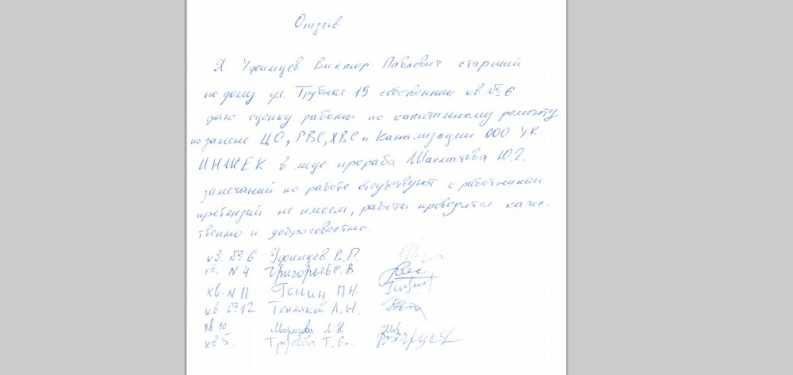 Отзыв
Я Удоимцев Виктор Павлович старший
по дому ул. Трубная 19 собственник кв № 6
даю оценку работы по капитальному ремонту
по замене ЦО, ГВС, ХВС и Канализации ООО УК
ИНЖЕК в лице прораба Шахматова Ю.Г.
замечаний по работе отсутствуют к работникам
претензий не имеем, работы проводятся качес-
твенно и добросовестно.
кв. № 6 Удоимцев В.П.
кв. N 4 Григорьев С.В
кв. N 11 Генин П.Н.
кв. № 12 Тепляков А.Н.
кв 10 Л.Я
кв 5. Т.В.